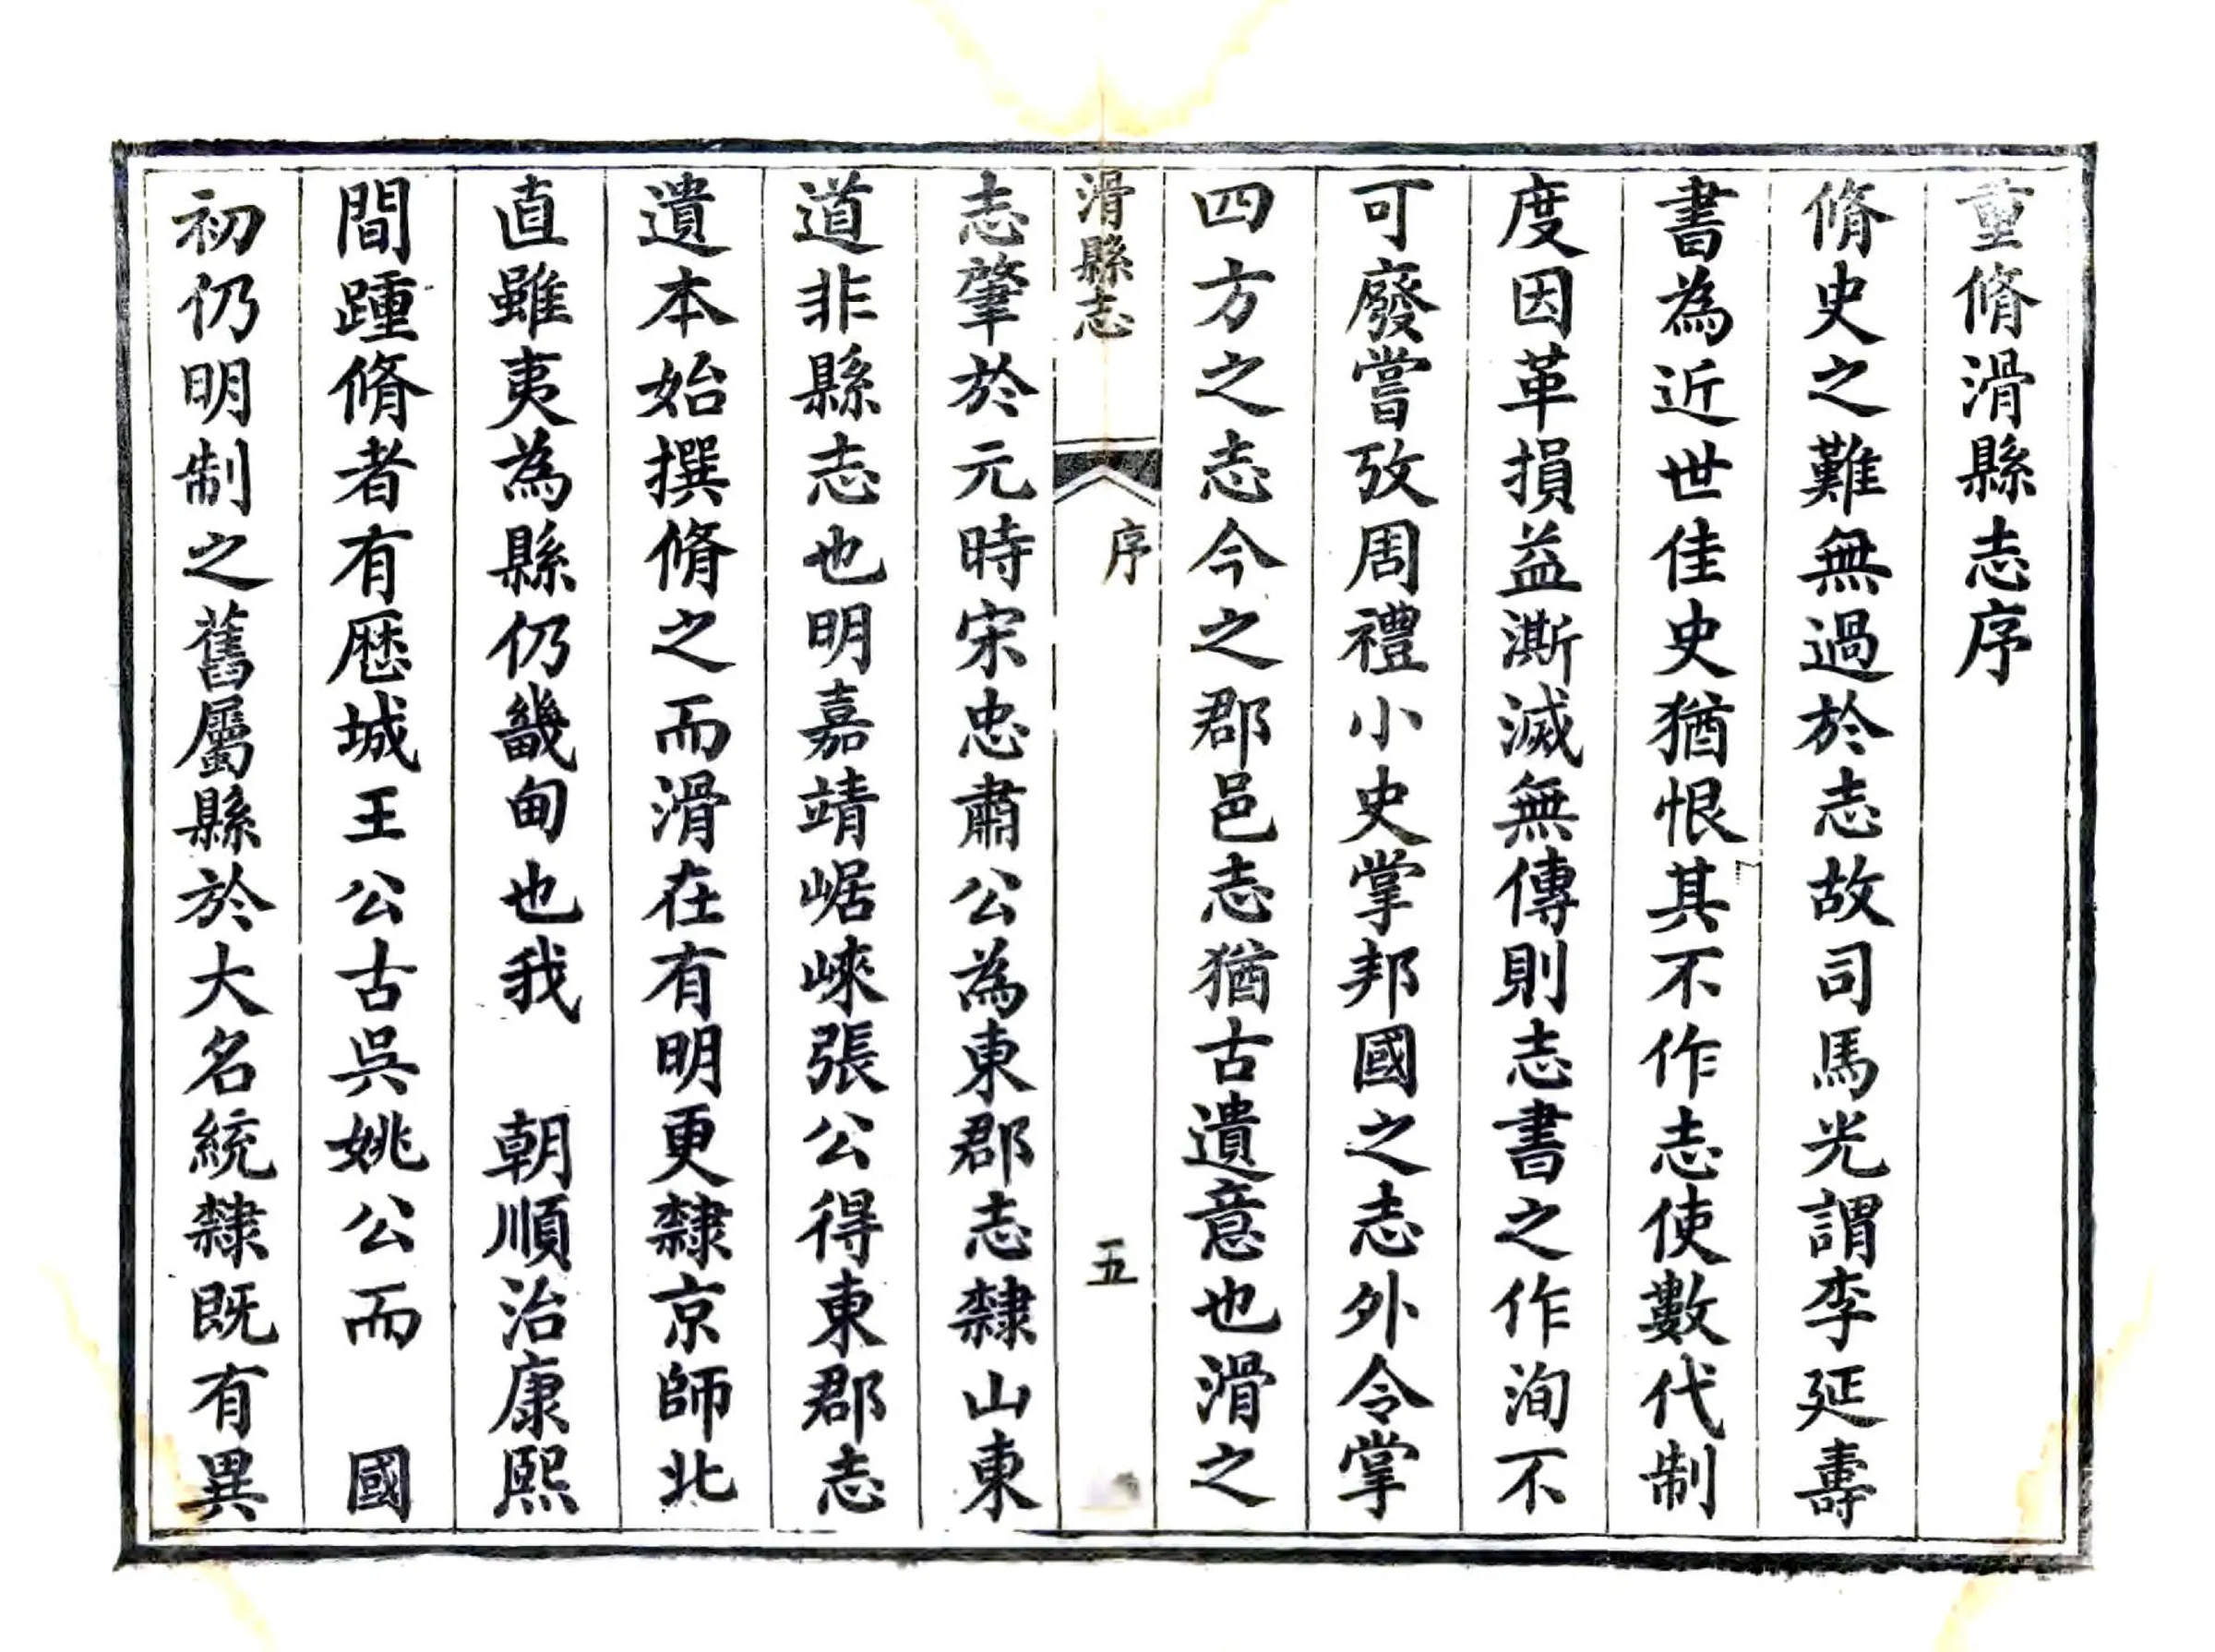 重脩滑縣志序
脩史之難無過於志故司馬光謂李延壽
書為近世佳史猶恨其不作志使數代制
度因革損益澌滅無傳則志書之作洵不
可廢嘗攷周禮小史掌邦國之志外令掌
四方之志今之郡邑志猶古遺意也滑之
滑縣志
序
五
志肇於元時宋忠肅公為東郡志隸山東
道非縣志也明嘉靖崌崍張公得東郡志
遺本始撰脩之而滑在有明更隸京師北
直雖夷為縣仍畿甸也我 朝順治康熙
間踵脩者有歴城王公古吳姚公而 國
初仍明制之舊屬縣於大名統隸既有異